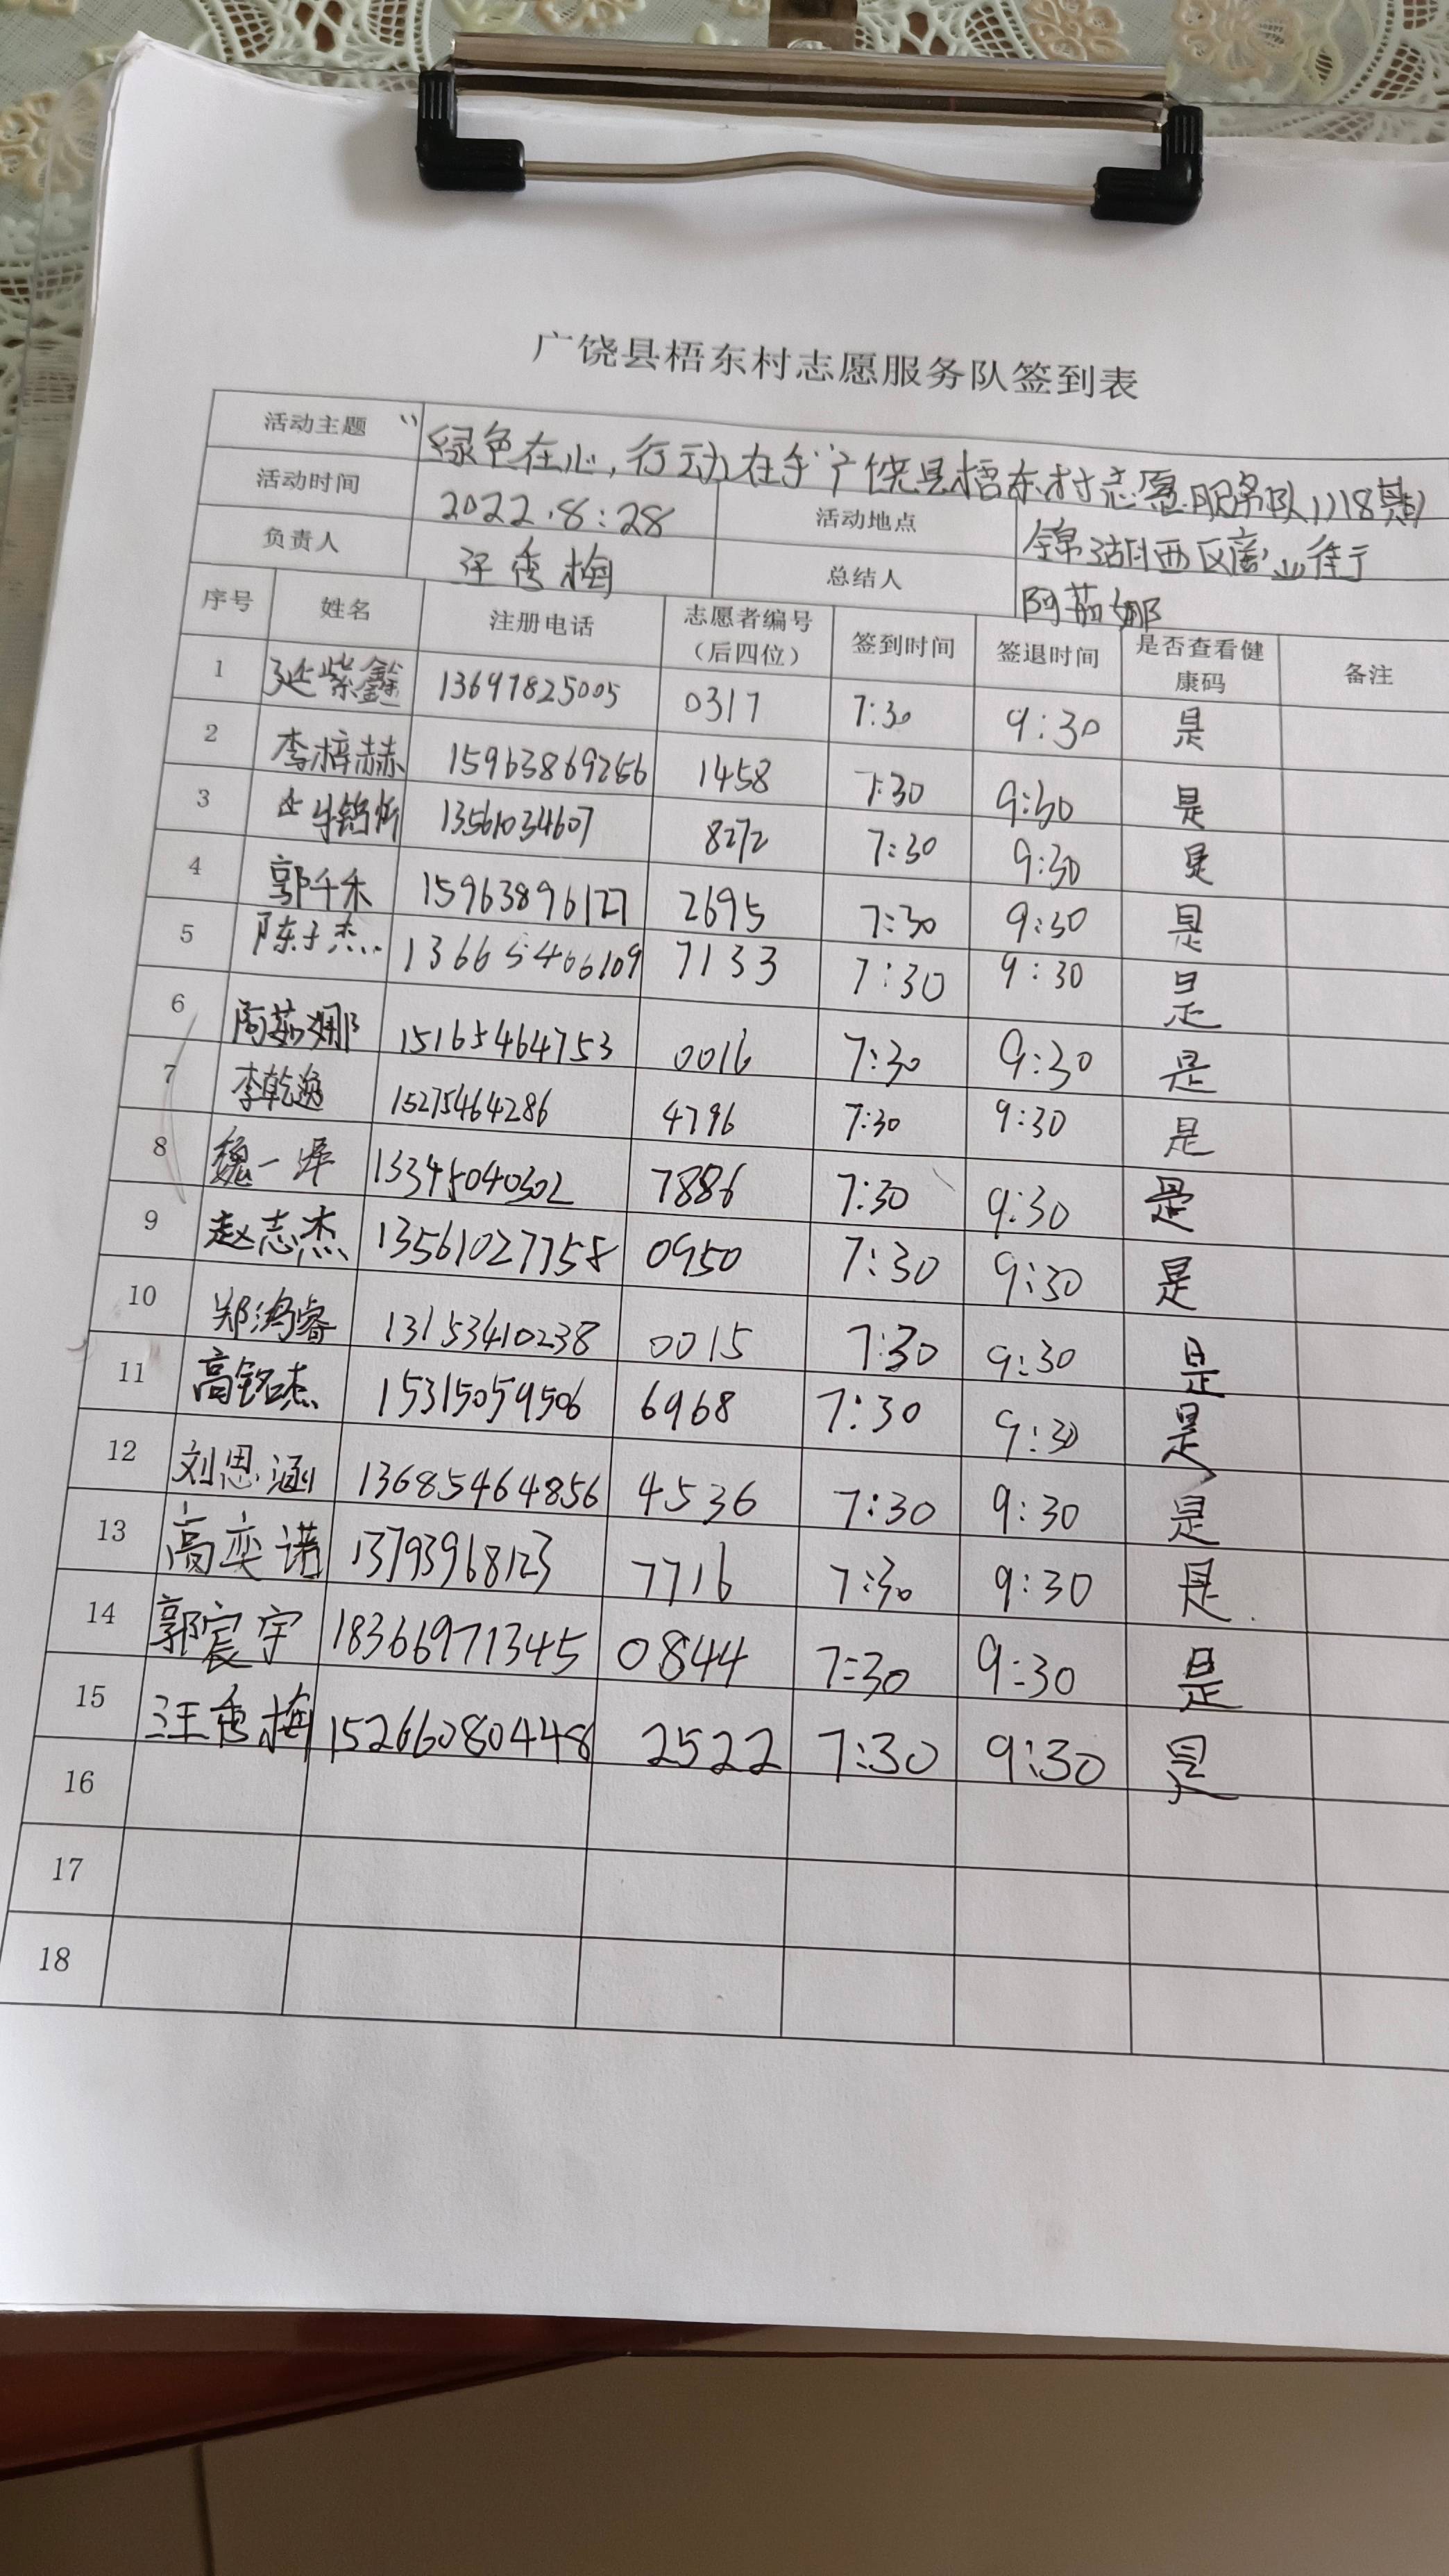 广饶县梧东村志愿服务队签到表
活动主题 “绿色在心,行动在手”广饶县梧东村志愿服务队1118期
活动时间 2022.8:28 活动地点 锦湖西区商业街
负责人 汪秀梅 总结人 阿茹娜
序号 姓名 注册电话 志愿者编号(后四位) 签到时间 签退时间 是否查看健康码 备注
1 延紫鑫 13697825005 0317 7:30 9:30 是
2 李梓赫 15963869266 1458 7:30 9:30 是
3 13561034607 8272 7:30 9:30 是
4 郭千禾 15963896127 2695 7:30 9:30 是
5 陈子杰 13665466109 7133 7:30 9:30 是
6 阿茹娜 15165464753 0016 7:30 9:30 是
7 李乾逸 15275464286 4796 7:30 9:30 是
8 魏一 13345040302 7886 7:30 9:30 是
9 赵志杰 13561027758 0950 7:30 9:30 是
10 郑鸿睿 13153410238 0015 7:30 9:30 是
11 高铭杰 15315059506 6968 7:30 9:30 是
12 刘思涵 13685464856 4536 7:30 9:30 是
13 高奕诺 13793968123 7716 7:30 9:30 是
14 郭宸宇 18366971345 0844 7:30 9:30 是
15 汪秀梅 15266080448 2522 7:30 9:30 是
16
17
18